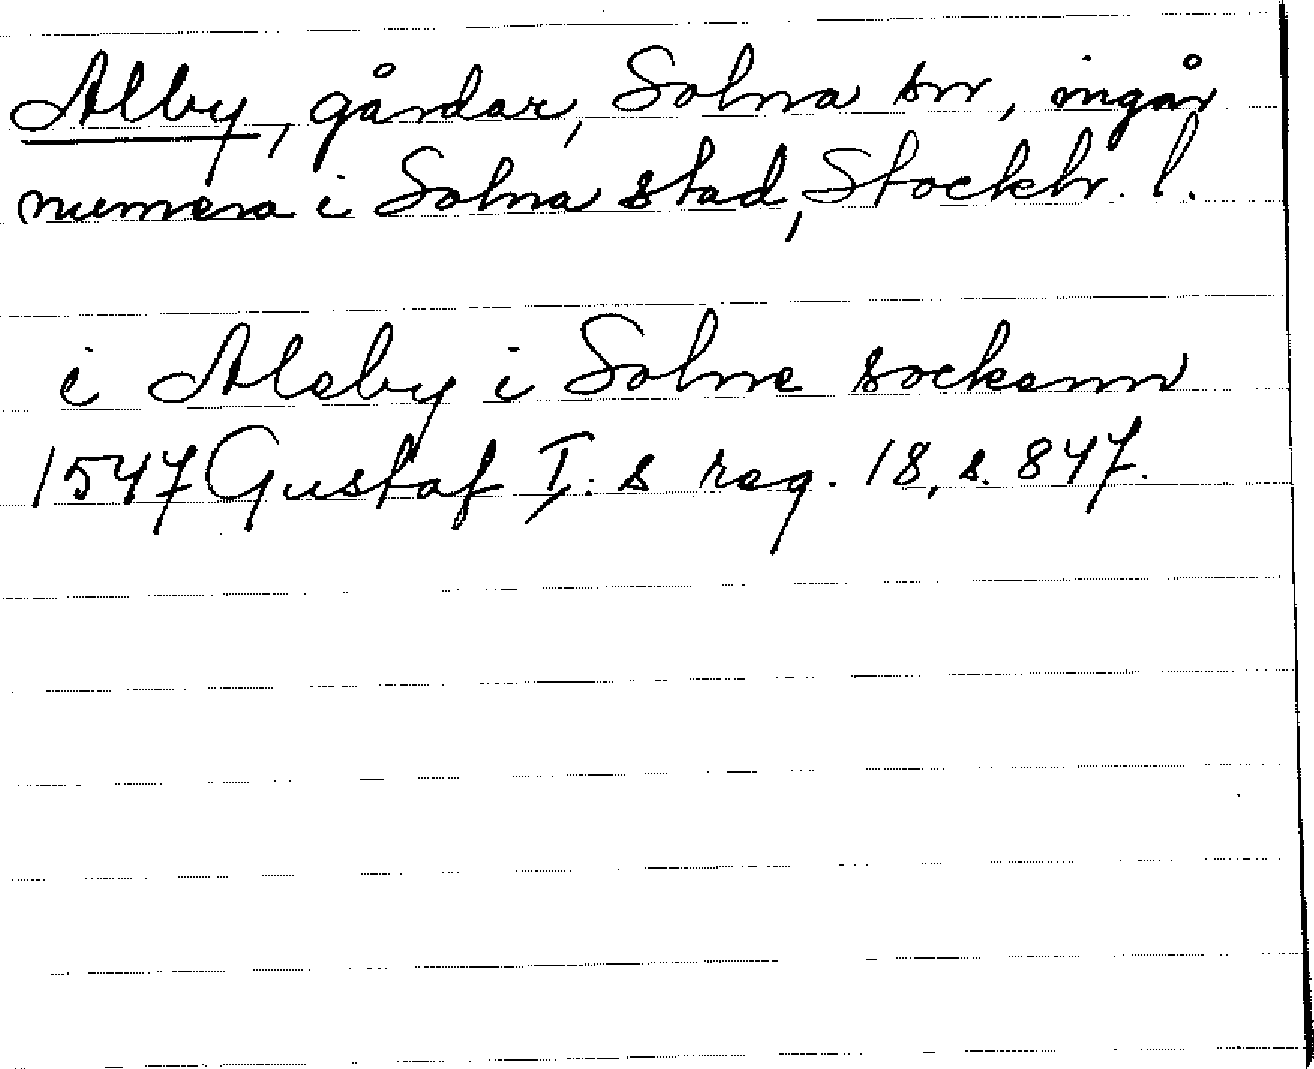 Alby, gårdar, Solna snr, ingår
numera i Solna stad, Stockh. l.
i Aleby i Solne sockenn
1547 Gustaf I:s reg. 18, s. 847.